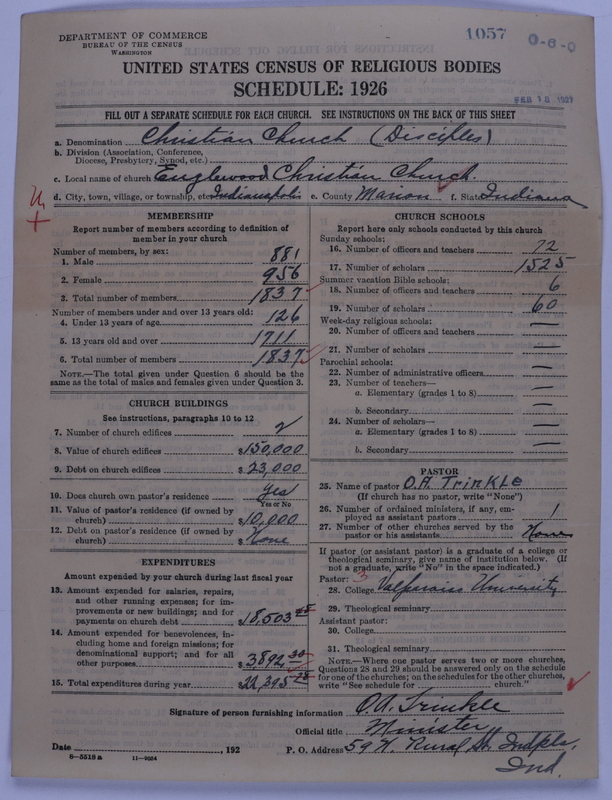 DEPARTMENT OF COMMERCE
BUREAU OF THE CENSUS
WASHINGTON
1057
0-6-0
UNITED STATES CENSUS OF RELIGIOUS BODIES
SCHEDULE: 1926
FEB 18 1927
FILL OUT A SEPARATE SCHEDULE FOR EACH CHURCH. SEE INSTRUCTIONS ON THE BACK OF THIS SHEET
a. Denomination Christian Church (Disciples)
b. Division (Association, Conference,
Diocese, Presbytery, Synod, etc.)
c. Local name of church Englewood Christian Church.
d. City, town, village, or township, etc. Indianapolis e. County Marion f. State Indiana
MEMBERSHIP
Report number of members according to definition of
member in your church
Number of members, by sex:
1. Male 881
2. Female 956
3. Total number of members 1837
Number of members under and over 13 years old:
4. Under 13 years of age 126
5. 13 years old and over 1711
6. Total number of members 1837
NOTE.—The total given under Question 6 should be the
same as the total of males and females given under Question 3.
CHURCH BUILDINGS
See instructions, paragraphs 10 to 12
7. Number of church edifices 2
8. Value of church edifices $150,000
9. Debt on church edifices $23,000
10. Does church own pastor's residence yes
Yes or No
11. Value of pastor's residence (if owned by
church) $10,000
12. Debt on pastor's residence (if owned by
church) $None
EXPENDITURES
Amount expended by your church during last fiscal year
13. Amount expended for salaries, repairs,
and other running expenses; for im-
provements or new buildings; and for
payments on church debt $18,503
14. Amount expended for benevolences, in-
cluding home and foreign missions; for
denominational support; and for all
other purposes $3892 30
15. Total expenditures during year $22,395
CHURCH SCHOOLS
Report here only schools conducted by this church
Sunday schools:
16. Number of officers and teachers 72
17. Number of scholars 1525
Summer vacation Bible schools:
18. Number of officers and teachers 6
19. Number of scholars 60
Week-day religious schools:
20. Number of officers and teachers —
21. Number of scholars —
Parochial schools:
22. Number of administrative officers —
23. Number of teachers—
a. Elementary (grades 1 to 8) —
b. Secondary —
24. Number of scholars—
a. Elementary (grades 1 to 8) —
b. Secondary —
PASTOR
25. Name of pastor O.A. Trinkle
(If church has no pastor, write "None")
26. Number of ordained ministers, if any, em-
ployed as assistant pastors 1
27. Number of other churches served by the
pastor or his assistants None
If pastor (or assistant pastor) is a graduate of a college or
theological seminary, give name of institution below. (If
not a graduate, write "No" in the space indicated.)
Pastor: 3
28. College Valparaiso University
29. Theological seminary
Assistant pastor:
30. College
31. Theological seminary
NOTE.—Where one pastor serves two or more churches,
Questions 28 and 29 should be answered only on the schedule
for one of the churches; on the schedules for the other churches,
write "See schedule for church."
Signature of person furnishing information O.A. Trinkle
Official title Minister
Date , 192
P. O. Address 59 N. Rural St. Indpls,
Ind.
8—5518 a 11—9054